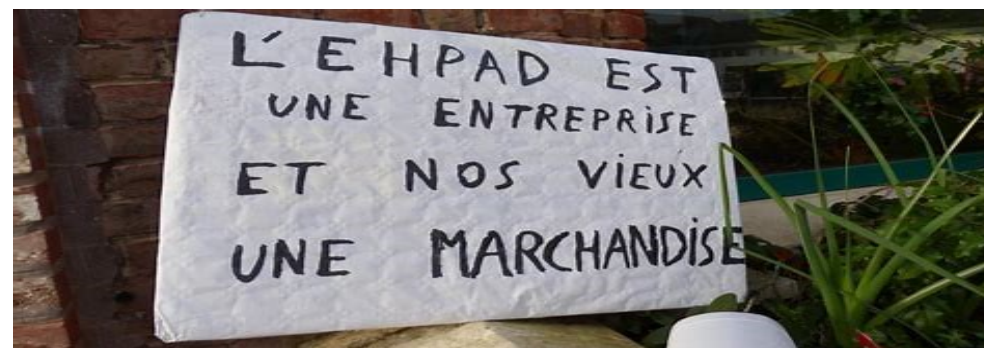 L'EHPAD EST
UNE ENTREPRiSE
ET NOS ViEUX
UNE MARCHANDiSE